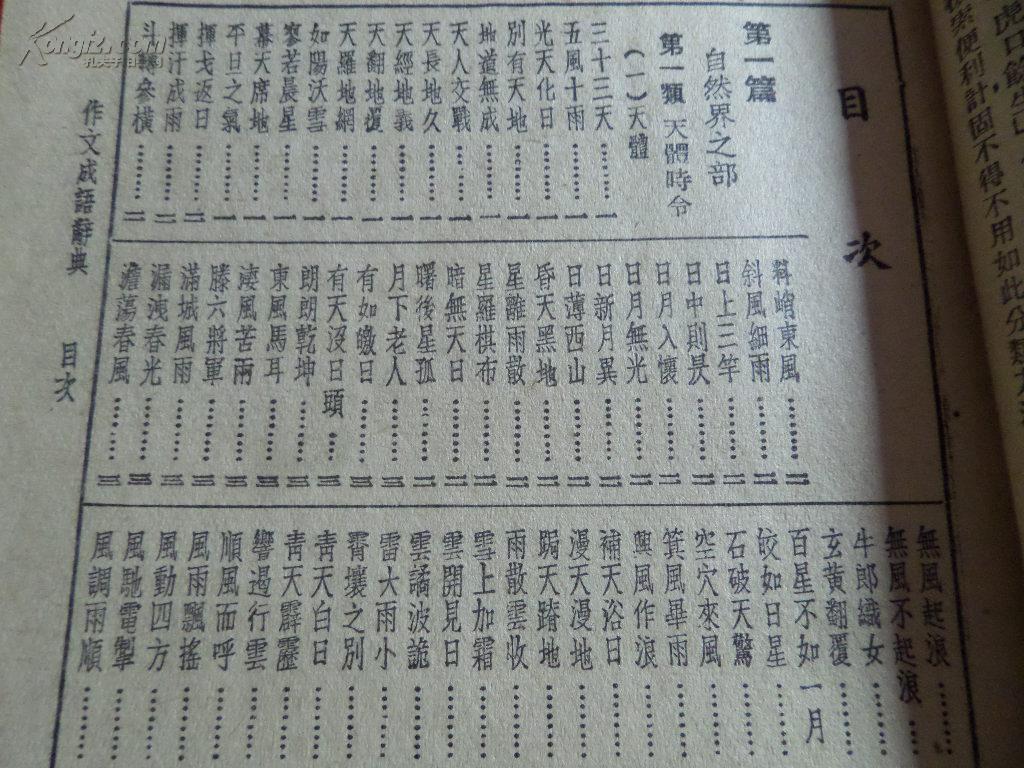 目次
第一篇
自然界之部
第一類 天體時令
(一)天體
三十三天………一
五風十雨………一
光天化日………一
別有天地………一
地道無成………一
天人交戰………一
天長地久………一
天經地義………一
天翻地覆………一
天羅地網………一
如陽沃雪………一
寥若晨星………一
幕天席地………一
平旦之氣………一
揮戈返日………二
揮汗成雨………二
斗轉參橫………二
料峭東風………二
斜風細雨………二
日上三竿………二
日中則昃………二
日月入懷………二
日月無光………二
日新月異………二
日薄西山………二
昏天黑地………二
星離雨散………二
星羅棋布………二
暗無天日………二
曙後星孤………二
月下老人………三
有如皦日………三
有天沒日頭………三
朗朗乾坤………三
東風馬耳………三
淒風苦雨………三
滕六將軍………三
滿城風雨………三
漏洩春光………三
澹蕩春風………三
無風起浪………
無風不起浪………
牛郎織女………
玄黃翻覆………
百星不如一月………
皎如日星………
石破天驚………
空穴來風………
箕風畢雨………
興風作浪………
補天浴日………
漫天漫地………
跼天蹐地………
雨散雲收………
雪上加霜………
雲開見日………
雲譎波詭………
雷大雨小………
霄壤之別………
青天白日………
青天霹靂………
響遏行雲………
順風而呼………
風雨飄搖………
風動四方………
風馳電掣………
風調雨順………
作文成語辭典 目次
虎口餘生
便利計固不得不用如此分類
Kongfz.com
孔夫子旧书网